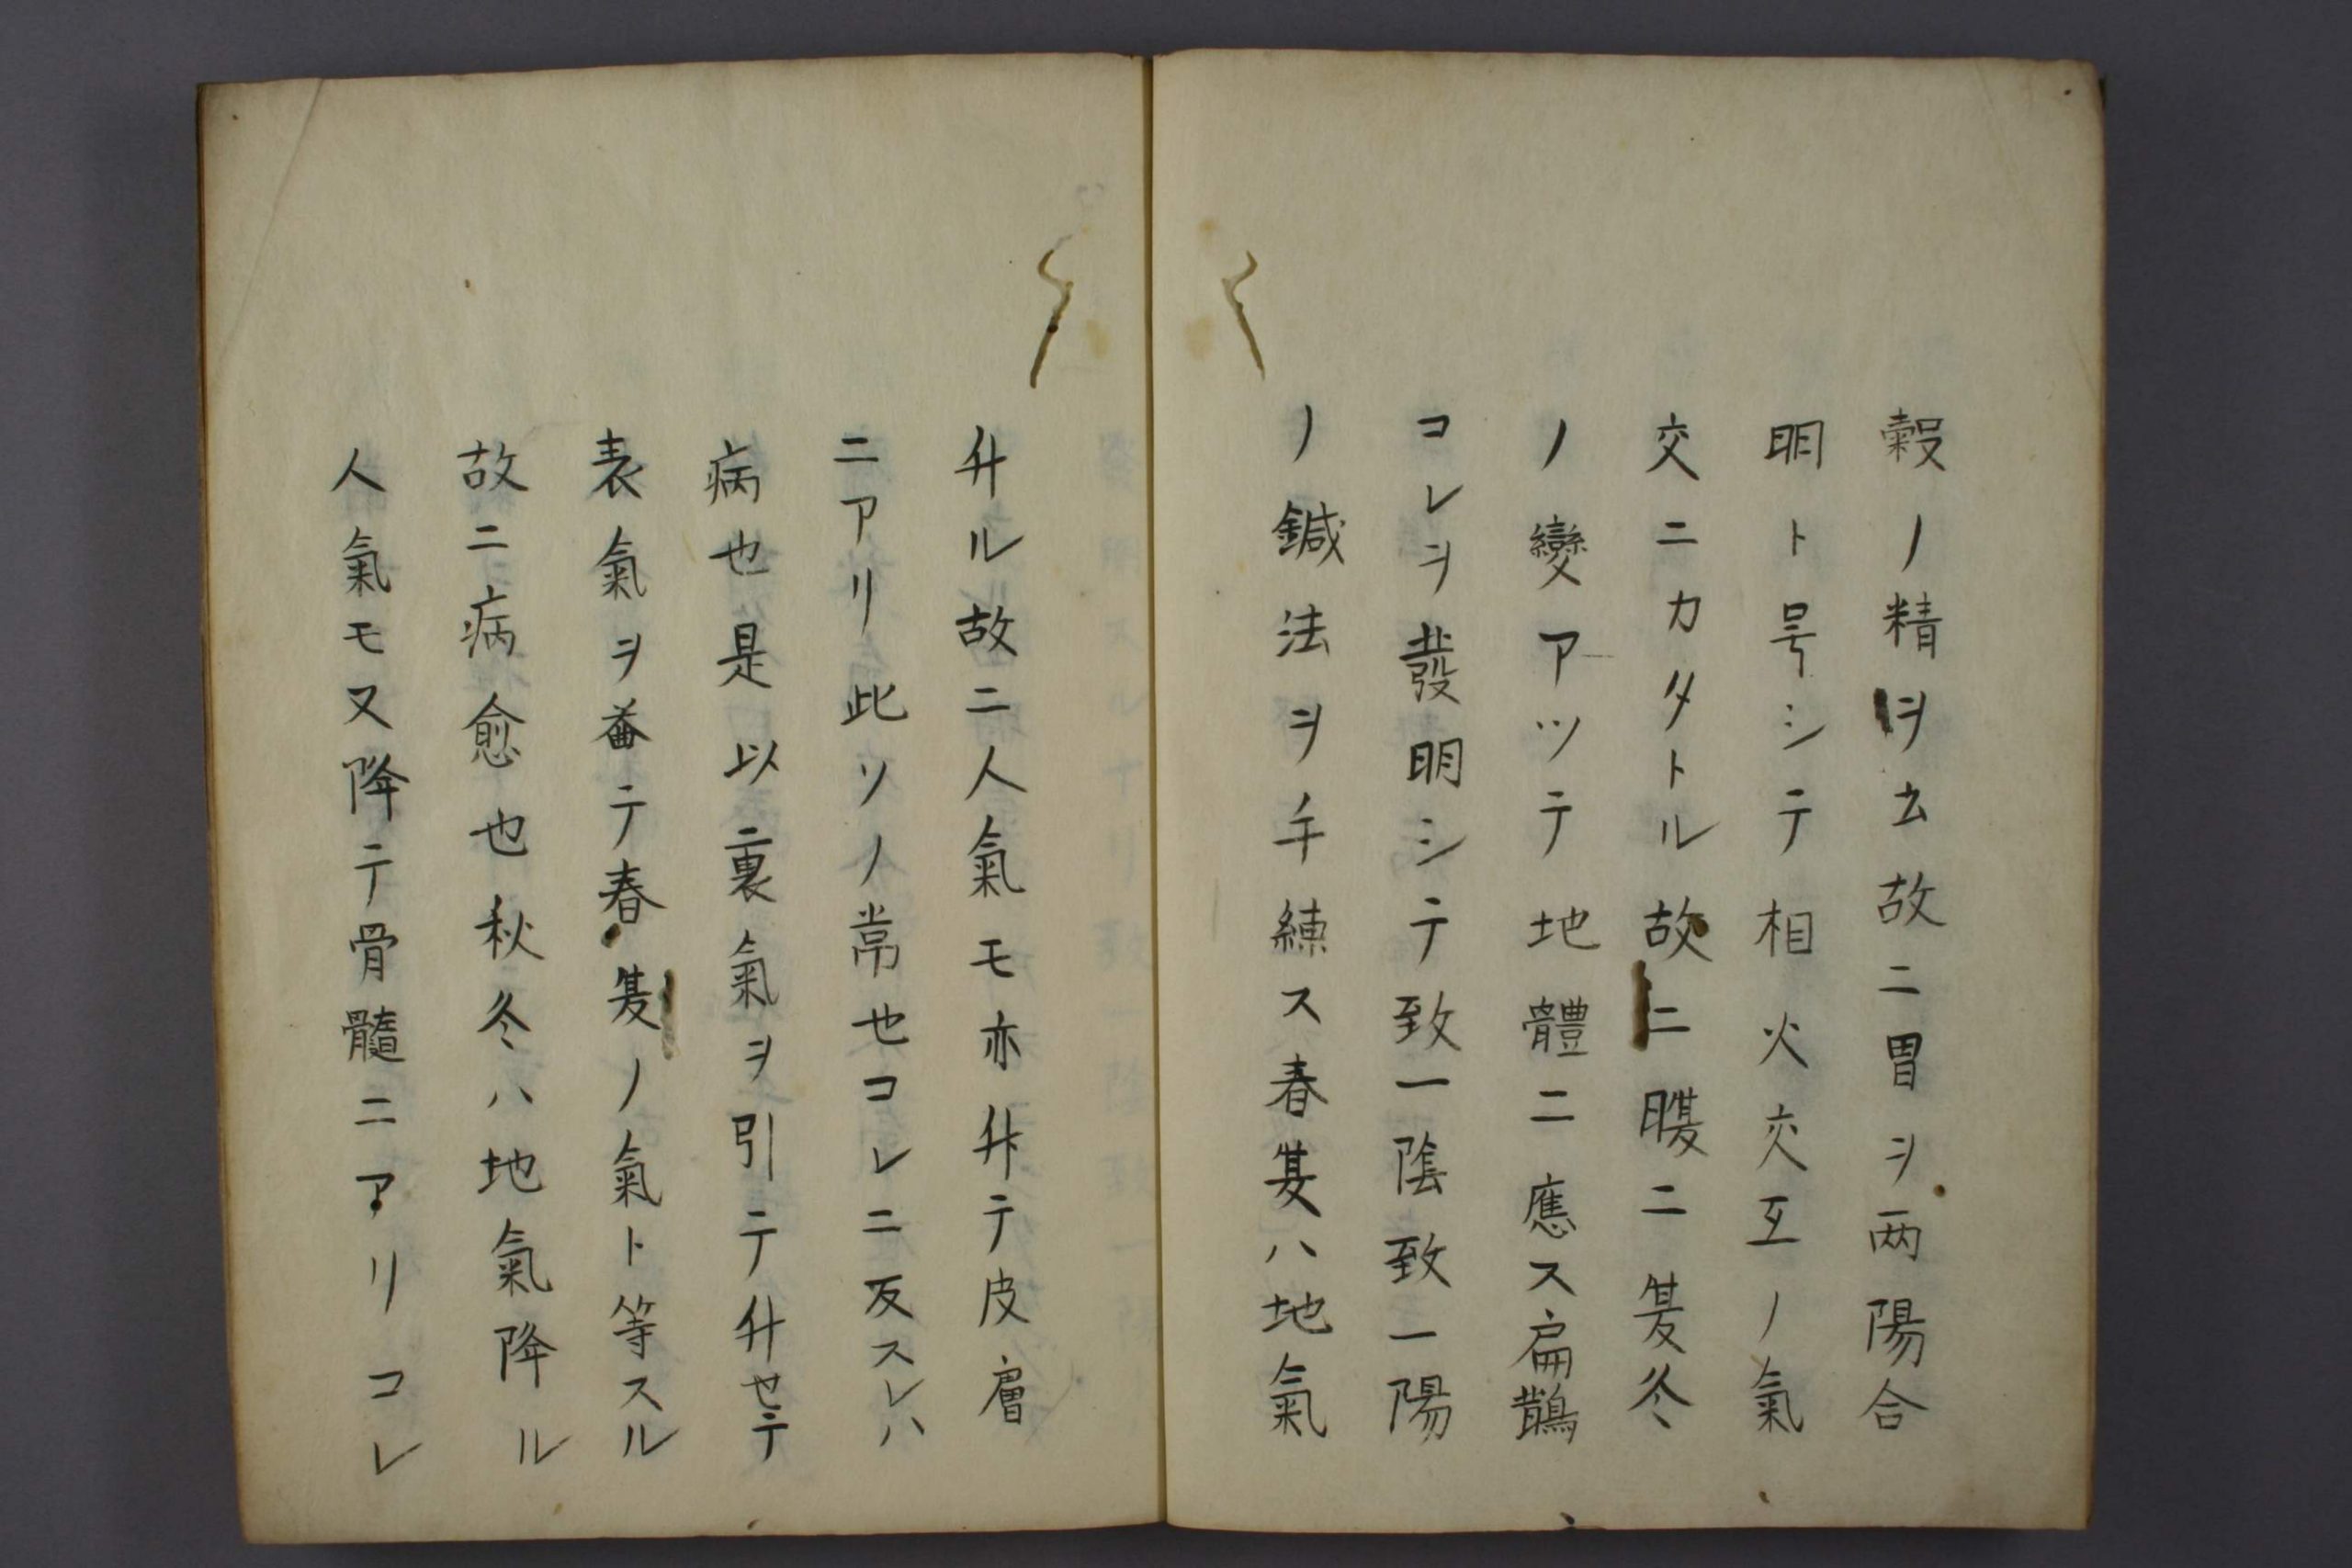 穀ノ精ヲ主故ニ胃ヲ两陽合
明ト号シテ相火交互ノ氣
交ニカタトル故ニ腹ニ夏冬
ノ變アツテ地體ニ應ス扁鵲
コレヲ發明シテ致一陰致一陽
ノ鍼法ヲ手練ス春夏ハ地氣
升ル故ニ人氣モ亦升テ皮膚
ニアリ此ソノ常也コレニ反スレハ
病也是以裏氣ヲ引テ升セテ
表氣ヲ益テ春夏ノ氣ト等スル
故ニ病愈也秋冬ハ地氣降ル
人氣モ又降テ骨髓ニアリコレ